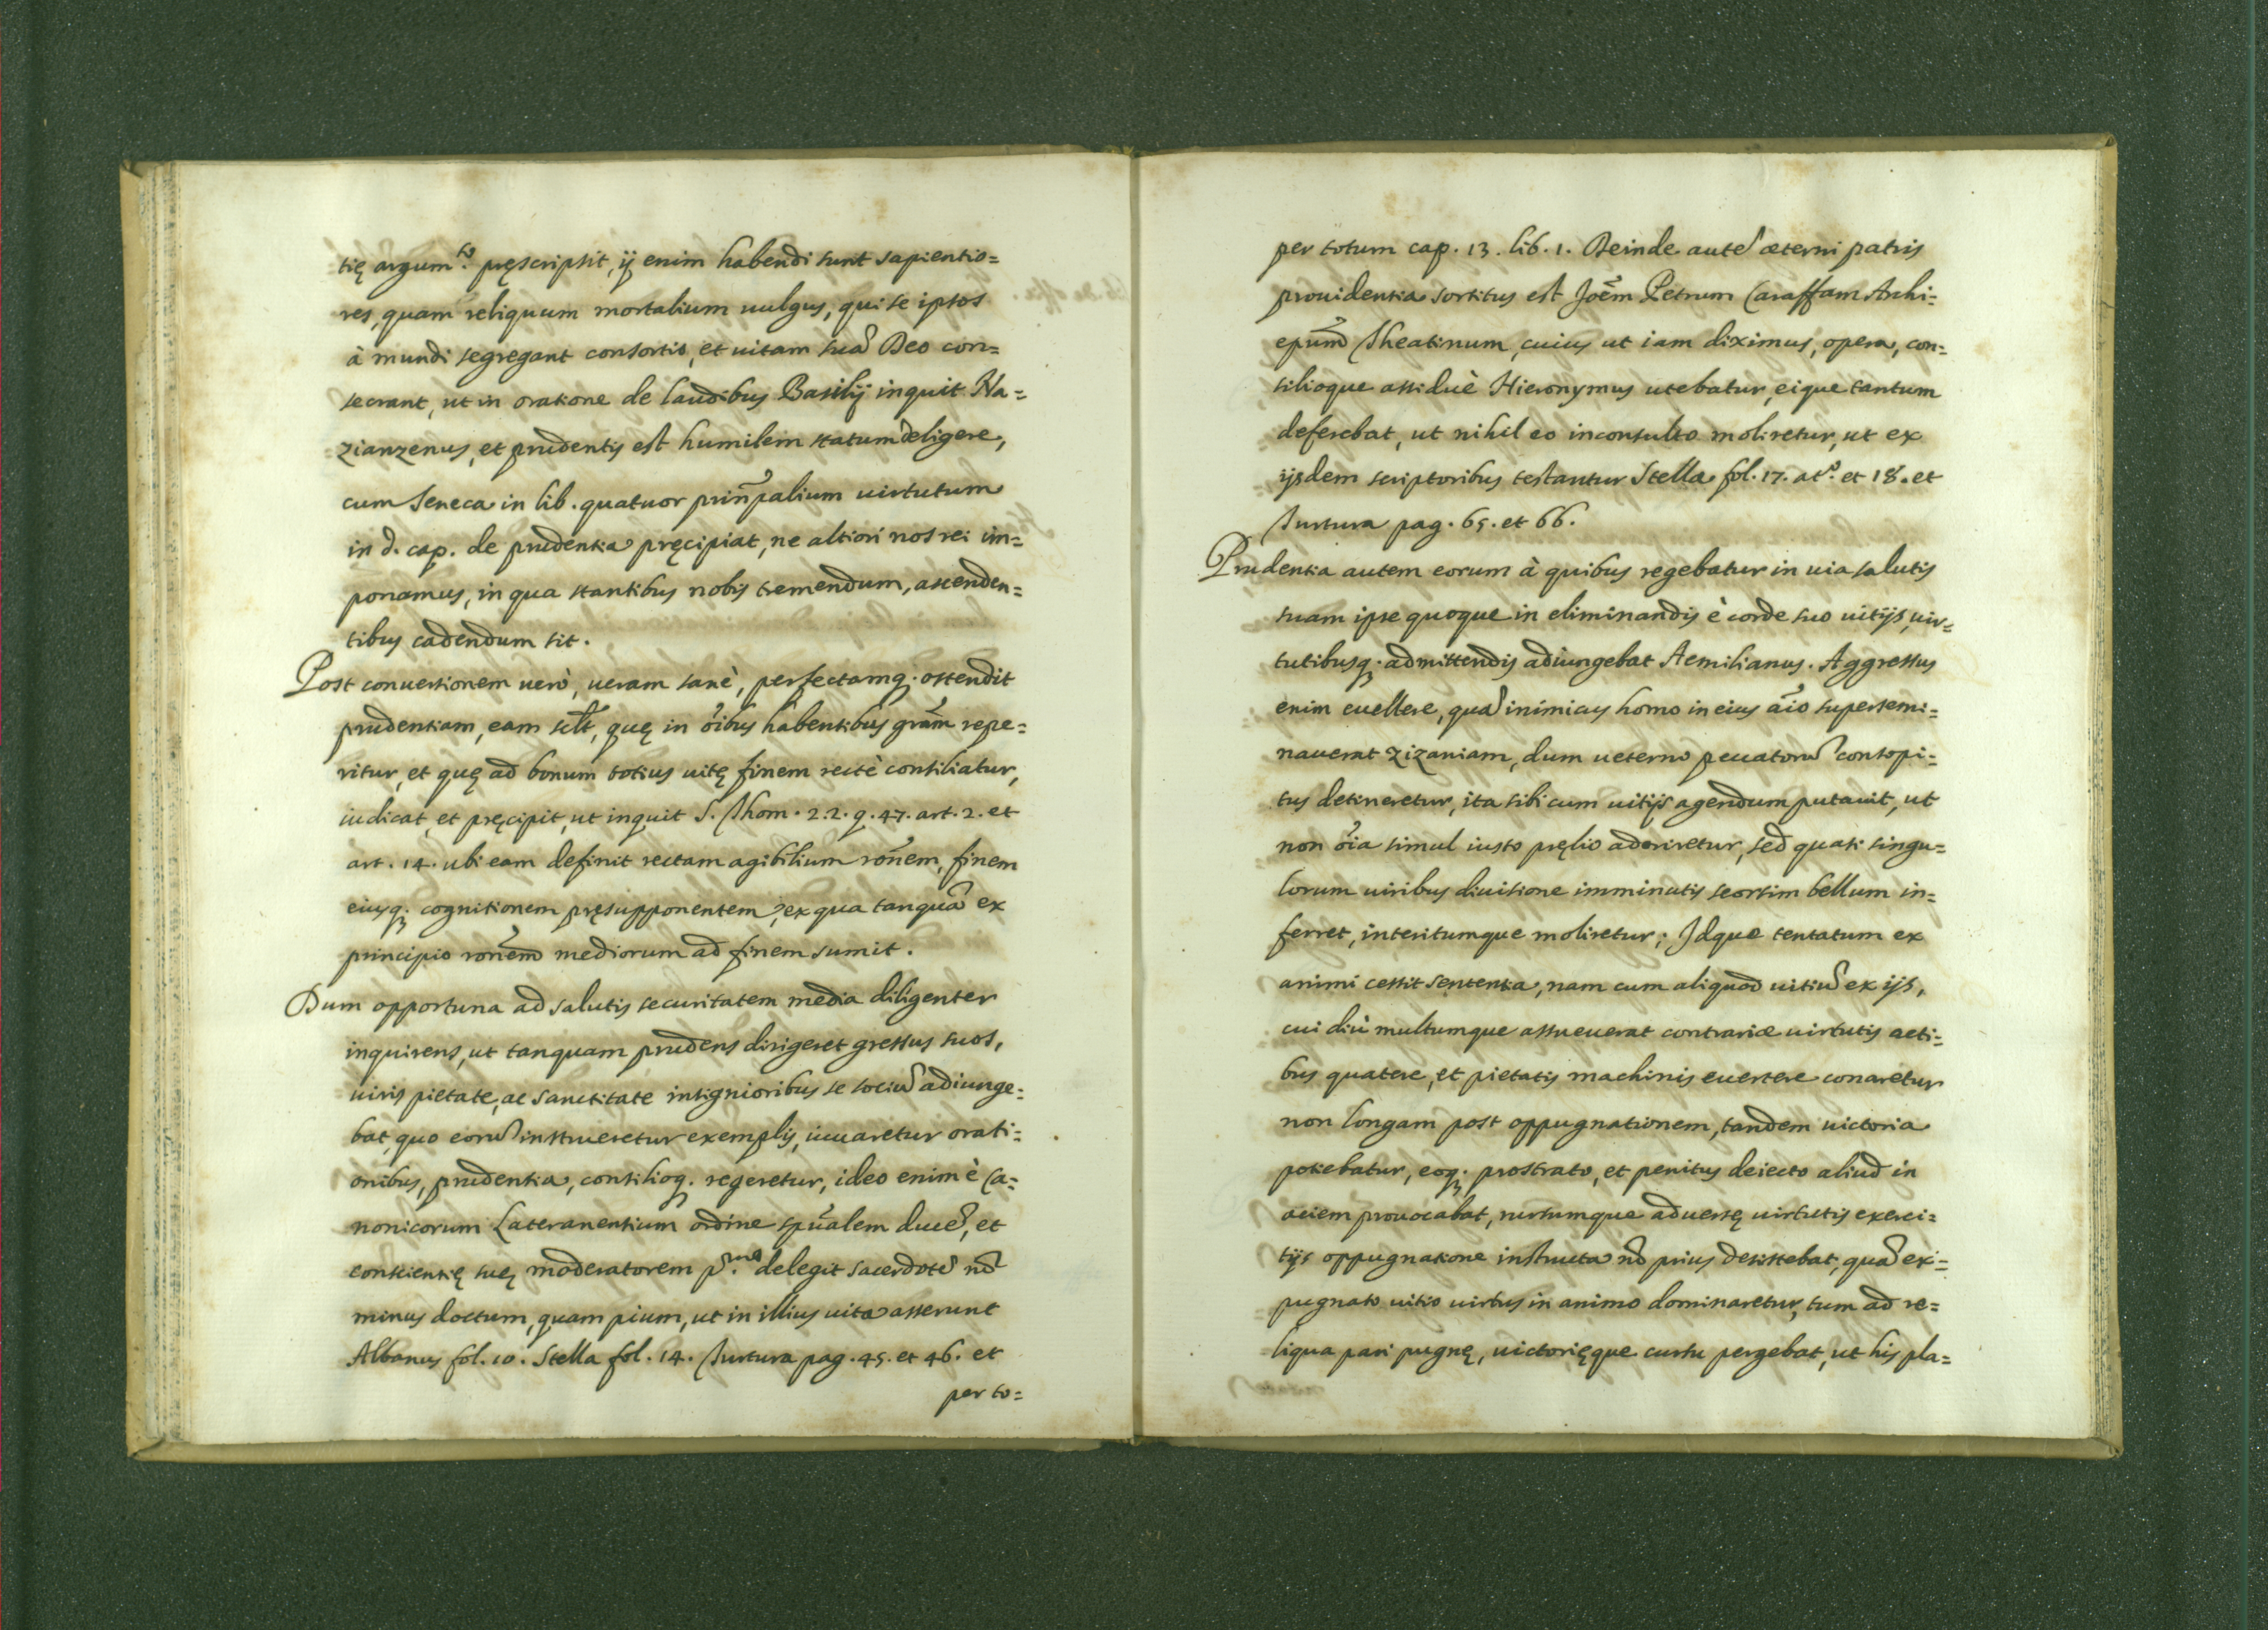 tię argum.to pręscripsit, ij enim habendi sunt sapientio=
res, quam reliquum mortalium uulgus, qui se ipsos
à mundi segregant consortio, et uitam suã Deo con=
secrant, ut in oratione de laudibus Basilij inquit Na=
zianzenus, et prudentis est humilem statum deligere,
cum Seneca in lib. quatuor prin͂palium uirtutum
in d. cap. de prudentia pręcipiat, ne altiori nos rei im=
ponamus, in qua stantibus nobis tremendum, ascenden=
tibus cadendum sit.
Post conuersionem uerò, ueram sanè, perfectamq; ostendit
prudentiam, eam scil͂t, quę in õibus habentibus grãm repe=
ritur, et quę ad bonum totius uitę finem rectè consiliatur,
iudicat, et pręcipit, ut inquit S. Thom. 2.2. q. 47. art. 2. et
art. 14. ubi eam definit rectam agibilium rõnem, finem
eiusq; cognitionem pręsupponentem, ex qua tanquã ex
principio rõnem mediorum ad finem sumit.
Dum opportuna ad salutis securitatem media diligenter
inquirens, ut tanquam prudens dirigeret gressus suos,
uiris pietate, ac sanctitate insignioribus se sociũ adiunge=
bat, quo eorũ instrueretur exemplis, iuuaretur orati=
onibus, prudentia, consilioq; regeretur, ideo enim è Ca=
nonicorum Lateranensium ordine spũalem ducẽ, et
conscientię suę moderatorem p.mo delegit sacerdotẽ nõ
minus doctum, quam pium, ut in illius uita asserunt
Albanus fol. 10. Stella fol. 14. Turtura pag. 45. et 46. et
per to=
per totum cap. 13. lib. 1. Deinde autẽ æterni patris
prouidentia sortitus est Joẽm Petrum Caraffam Archi=
epũm Theatinum, cuius ut iam diximus, opera, con=
silioque assiduè Hieronymus utebatur, eique tantum
deferebat, ut nihil eo inconsulto moliretur, ut ex
ijsdem scriptoribus testantur Stella fol. 17. at.o et 18. et
Turtura pag. 65. et 66.
Prudentia autem eorum à quibus regebatur in uia salutis
suam ipse quoque in eliminandis è corde suo uitijs, uir=
tutibusq; admittendis adiungebat Aemilianus. Aggressus
enim euellere, quã inimicus homo in eius ãio supersemi=
nauerat zizaniam, dum ueterno peccatorũ consopi=
tus detineretur, ita sibi cum uitijs agendum putauit, ut
non õia simul iusto pręlio adoriretur, sed quasi singu=
lorum uiribus diuisione imminutis seorsim bellum in=
ferret, interitumque moliretur; Idque tentatum ex
animi cessit sententia, nam cum aliquod uitiũ ex ijs,
cui diù multumque assueuerat contrariæ uirtutis acti=
bus quatere, et pietatis machinis euertere conaretur
non longam post oppugnationem, tandem uictoria
potiebatur, eoq; prostrato, et penitus deiecto aliud in
aciem prouocabat, rursumque aduersę uirtutis exerci=
tijs oppugnatione instructa nõ prius desistebat, quã ex=
pugnato uitio uirtus in animo dominaretur, tum ad re=
liqua pari pugnę, uictorięque cursu pergebat, ut his pla=